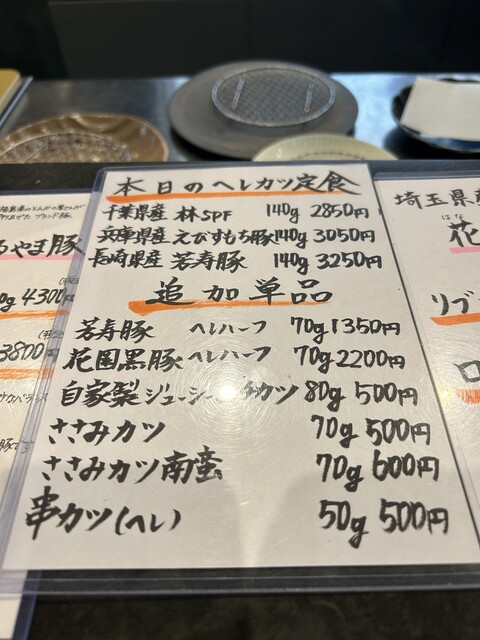 本日のヘレカツ定食
千葉県産 林SPF 140g 2850円
兵庫県産 えびすもち豚 140g 3050円
長崎県産 若寿豚 140g 3250円
追加単品
若寿豚 ヘレハーフ 70g 1350円
花園黒豚 ヘレハーフ 70g 2200円
自家製ジューシー カツ 80g 500円
ささみカツ 70g 500円
ささみカツ南蛮 70g 600円
串カツ(ヘレ) 50g 500円
やま豚
0g 4300
3800円
埼玉県産
はな
花
リブ
ロ